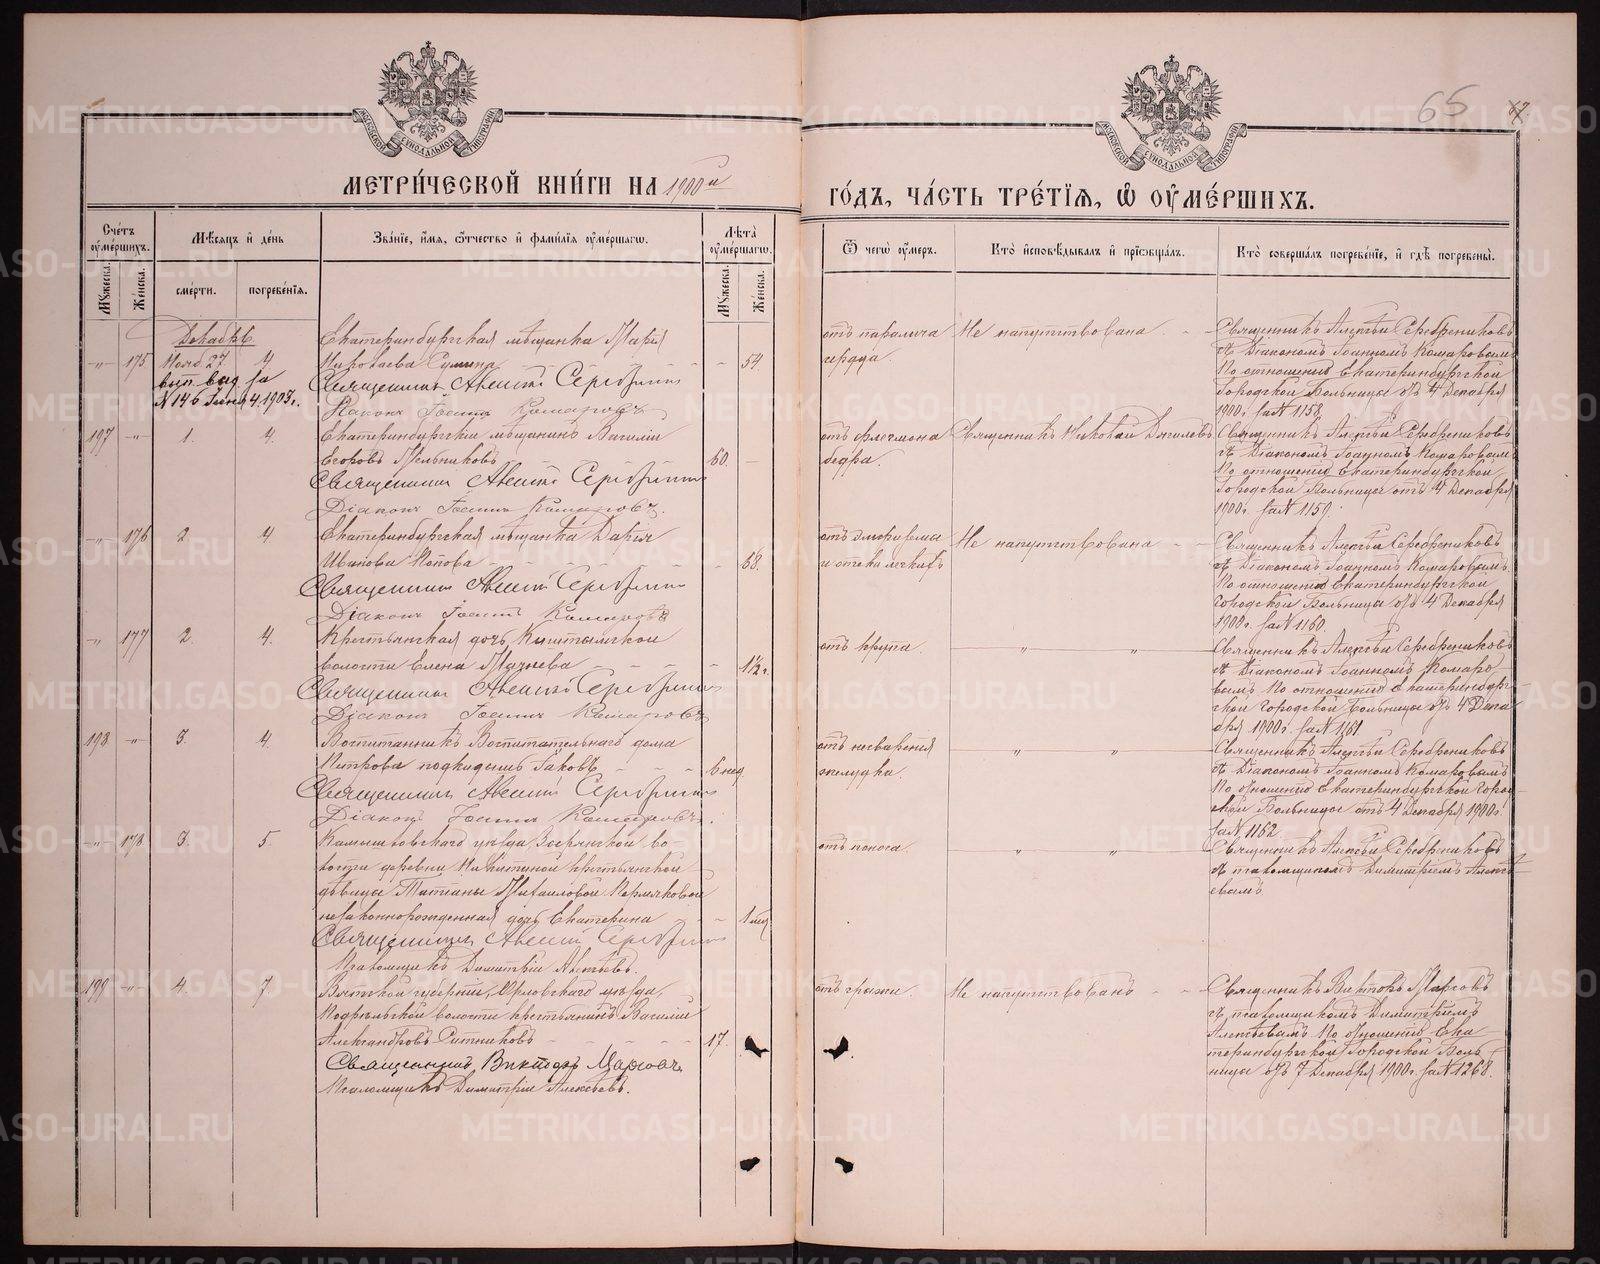 65
МЕТРИ́ЧЕСКОЙ КНИ́ГИ НА 1900й
ГО́ДЪ, ЧА́СТЬ ТРЕ́ТІЯ, Ѡ ОУМЕ́РШИХЪ.
Сче́тъ оумершихъ.
Му́жеска.
Же́нска.
Мѣсяцъ и́ де́нь
сме́рти.
погребе́нія.
Зва́ніе, и́мя, ѻ́тчество и́ фами́лія оуме́ршагѡ.
Лѣта̀ оуме́ршагѡ.
Му́жеска.
Же́нска.
Ѿ чегѡ̀ оу́меръ.
Кто̀ и́сповѣдывалъ и́ прїѡбща́лъ.
Кто̀ соверша́лъ погребе́ніе, и́ гдѣ̀ погребены̀.
Декабрь
„ 175 Нояб 27 4
вып. выд. за
N 146 Іюня 4. 1903 г.
Екатеринбургская мѣщанка Марія
54.
Священникъ Алексій Серебренниковъ
Діаконъ Іоаннъ Комаровъ
отъ паралича
сердца.
Не напутствована
Священникъ Алексѣй Серебрениковъ
съ Діакономъ Іоанномъ Комаровымъ
По отношенію Екатеринбургской
Городской Больницы отъ 4 Декабря
1900 г. за N 1158.
197 „ 1. 4.
Екатеринбургскій мѣщанинъ Василій
Егоровъ Мельниковъ
60.
Священникъ Алексій Серебренниковъ
Діаконъ Іоаннъ Комаровъ.
отъ флегмона
бедра.
Священникъ Николай
Священникъ Алексѣй Серебрениковъ
съ Діакономъ Іоанномъ Комаровымъ
По отношенію Екатеринбургской
Городской Больницы отъ 4 Декабря
1900 г. за N 1159.
„ 176 2. 4.
Екатеринбургская мѣщанка Дарья
Иванова Попова
68.
Священникъ Алексій Серебренниковъ
Діаконъ Іоаннъ Комаровъ
отъ эмфиземы
и отека легкихъ
Не напутствована
Священникъ Алексѣй Серебрениковъ
съ Діакономъ Іоанномъ Комаровымъ.
По отношенію Екатеринбургской
Городской Больницы отъ 4 Декабря
1900 г. за N 1160.
„ 177 2. 4.
Крестьянская дочь Кыштымской
волости Елена
1½ г.
Священникъ Алексій Серебренниковъ
Діаконъ Іоаннъ Комаровъ
отъ крупа.
„ „
Священникъ Алексѣй Серебрениковъ
съ Діакономъ Іоанномъ Комаро
вымъ По отношенію Екатеринбург
ской Городской Больницы отъ 4 Дека
бря 1900 г. за N 1161.
198 „ 3. 4.
Воспитанникъ Воспитательнаго дома
Петрова подкидышъ Іаковъ
6 нед.
Священникъ Алексій Серебренниковъ
Діаконъ Іоаннъ Комаровъ.
отъ несваренія
желудка.
„ „
Священникъ Алексѣй Серебрениковъ
съ Діакономъ Іоанномъ Комаровымъ
По отношенію Екатеринбургской Город-
ской Больницы отъ 4 Декабря 1900 г.
за N 1162
„ 178 3. 5.
Камышловскаго уѣзда Зырянской во-
лости деревни Никитиной крестьянской
дѣвицы Татіаны Михайловой Пермяковой
незаконнорожденная дочь Екатерина
1 мѣс.
Священникъ Алексій Серебренниковъ
Псаломщикъ Димитрій Алексѣевъ.
отъ поноса.
„ „
Священникъ Алексѣй Серебрениковъ
съ псаломщикомъ Димитріемъ Алексѣ-
евымъ
199 „ 4. 7.
Вятской губерніи, Орловскаго уѣзда,
волости крестьянинъ Василій
Александровъ Ситниковъ
17.
Священникъ Викторъ Марговъ
Псаломщикъ Димитрій Алексѣевъ.
отъ грыжи.
Не напутствованъ
Священникъ Викторъ Марговъ
съ псаломщикомъ Димитріемъ
Алексѣевымъ По отношенію Ека-
теринбургской Городской Боль-
ницы отъ 7 Декабря 1900 г. за N 1268.
METRIKI.GASO-URAL.RU